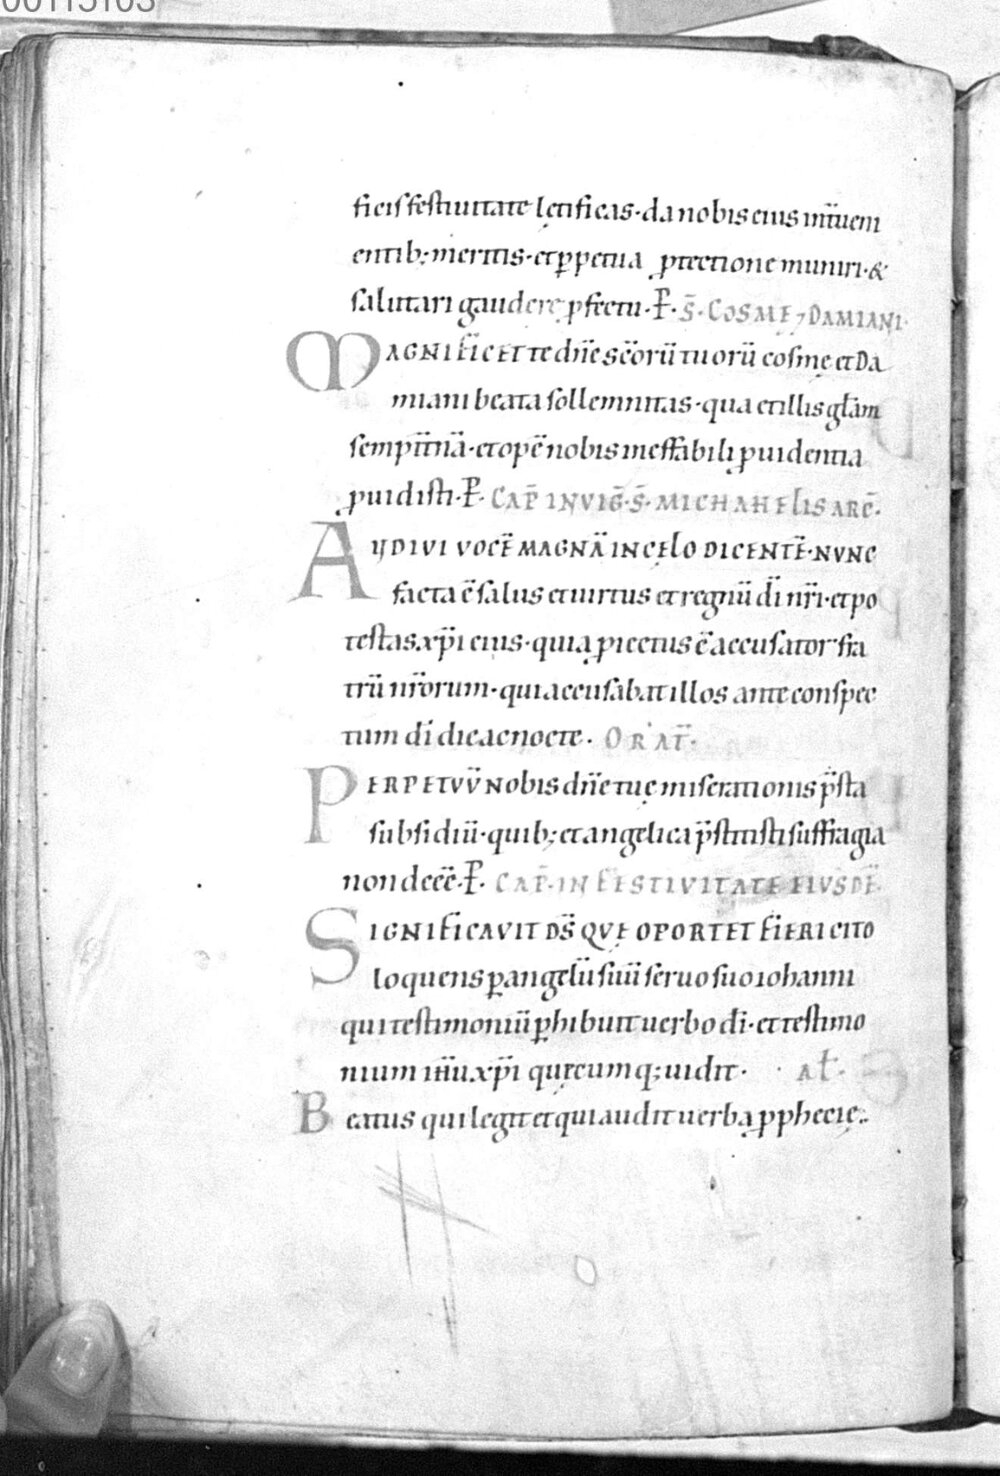 00115103
ficis festiuitate lętificas· da nobis eius int̄ueni
entib; meritis· et ꝑpetua ꝓtectione muniri· &
salutari gaudere ꝓfectu· P̄· S̄· COSME ⁊ DAMIANI·
MAGNIFICET te dn̄e sc̄orū tuorū cosmę et Da
miani beata sollemnitas· qua et illis gl̄am
sempit̄nā· et opē nobis ineffabili ꝓuidentia
ꝓuidisti· P̄· CAP̄ IN VIG̅· S̄· MICHAHELIS ARC̄·
AUDIVI VOCĒ MAGNĀ IN CĘLO DICENTĒ· NVNC
facta ē salus et uirtus et regnū dī nr̄i· et po
testas xp̄i eius· quia ꝓiectus ē accusator fra
trū nr̄orum· qui accusabat illos ante conspec
tum dī die ac nocte· ORAT̄·
PERPETVV̄ Nobis dn̄e tuę miserationis p̄sta
subsidiū· quib; et angelica p̄stitisti suffragia
non deēē· P̄· CAP̄· IN FESTIVITATE EIVSDĒ·
SIGNIFICAVIT DS̄ QVĘ OPORTET FIERI CITO
loquens ꝑ angelū suū seruo suo iohanni
qui testimoniū ꝑhibuit uerbo dī· et testimo
nium ih̄u xp̄i quęcumq; uidit· Al̄·
Beatus qui legit et qui audit uerba ꝓphecię·